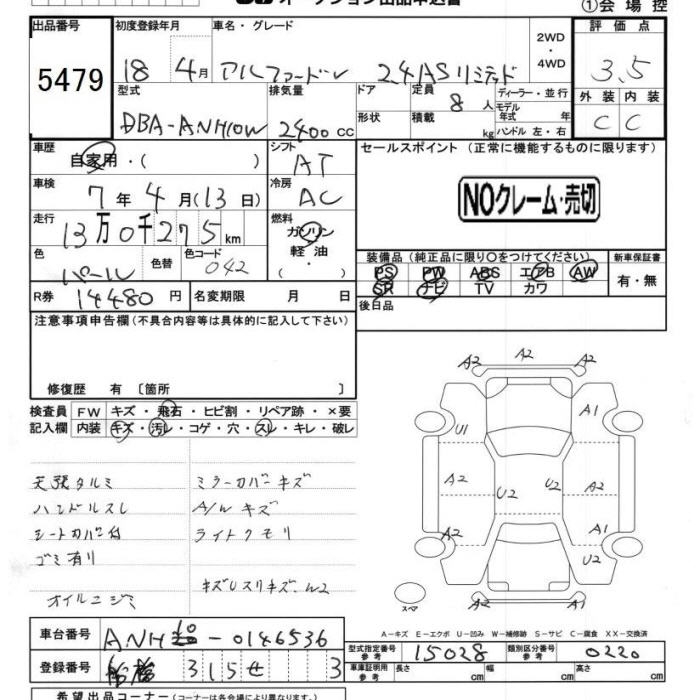 オークション出品申込書
①会 場 控
出品番号
5479
初度登録年月
18 4月
車名・グレード
アルファードV 24ASリミテッド
2WD
・
4WD
評 価 点
3.5
外 装 内 装
C C
型式
DBA-ANH10W
排気量
2400 cc
ドア
形状
定員
8 人
積載
kg
ディーラー・並 行
モデル
年式 年
ハンドル 左・右
車歴
自家用・( )
シフト
AT
車検
7 年 4 月(13 日)
冷房
AC
走行
13万0千275km
燃料
ガソリン
軽 油
・
色
パール
色替
色コード
042
R券 14480 円
名変期限 月 日
セールスポイント(正常に機能するものに限ります)
NOクレーム・売切
装備品(純正品に限り○をつけてください)
新車保証書
PS PW ABS エアB AW
SR ナビ TV カワ
有・無
後日品
注意事項申告欄(不具合内容等は具体的に記入して下さい)
修復歴 有 〔箇所 〕
検査員 FW キズ・飛石・ヒビ割・リペア跡・×要
記入欄 内装 キズ・汚レ・コゲ・穴・スレ・キレ・破レ
天張タルミ ミラーカバーキズ
ハンドルスレ A/Wキズ
シートカバー付 ライトクモリ
ゴミ有り
オイルニジミ キズUスリキズ W2
A2 A2 A2
A1
U1
A2 U2 U2 A2
A2 A1
U2
A2 A2
スペア
A-キズ E-エクボ U-凹み W-補修跡 S-サビ C-腐食 XX-交換済
車台番号 ANH10-0146536
登録番号 船橋 315 せ 3
型式指定番号
参考
15028
類別区分番号
参考
0220
車庫証明用
参考
長さ cm 幅 cm 高さ cm
希望出品コーナー(コーナーは各会場により異なります)